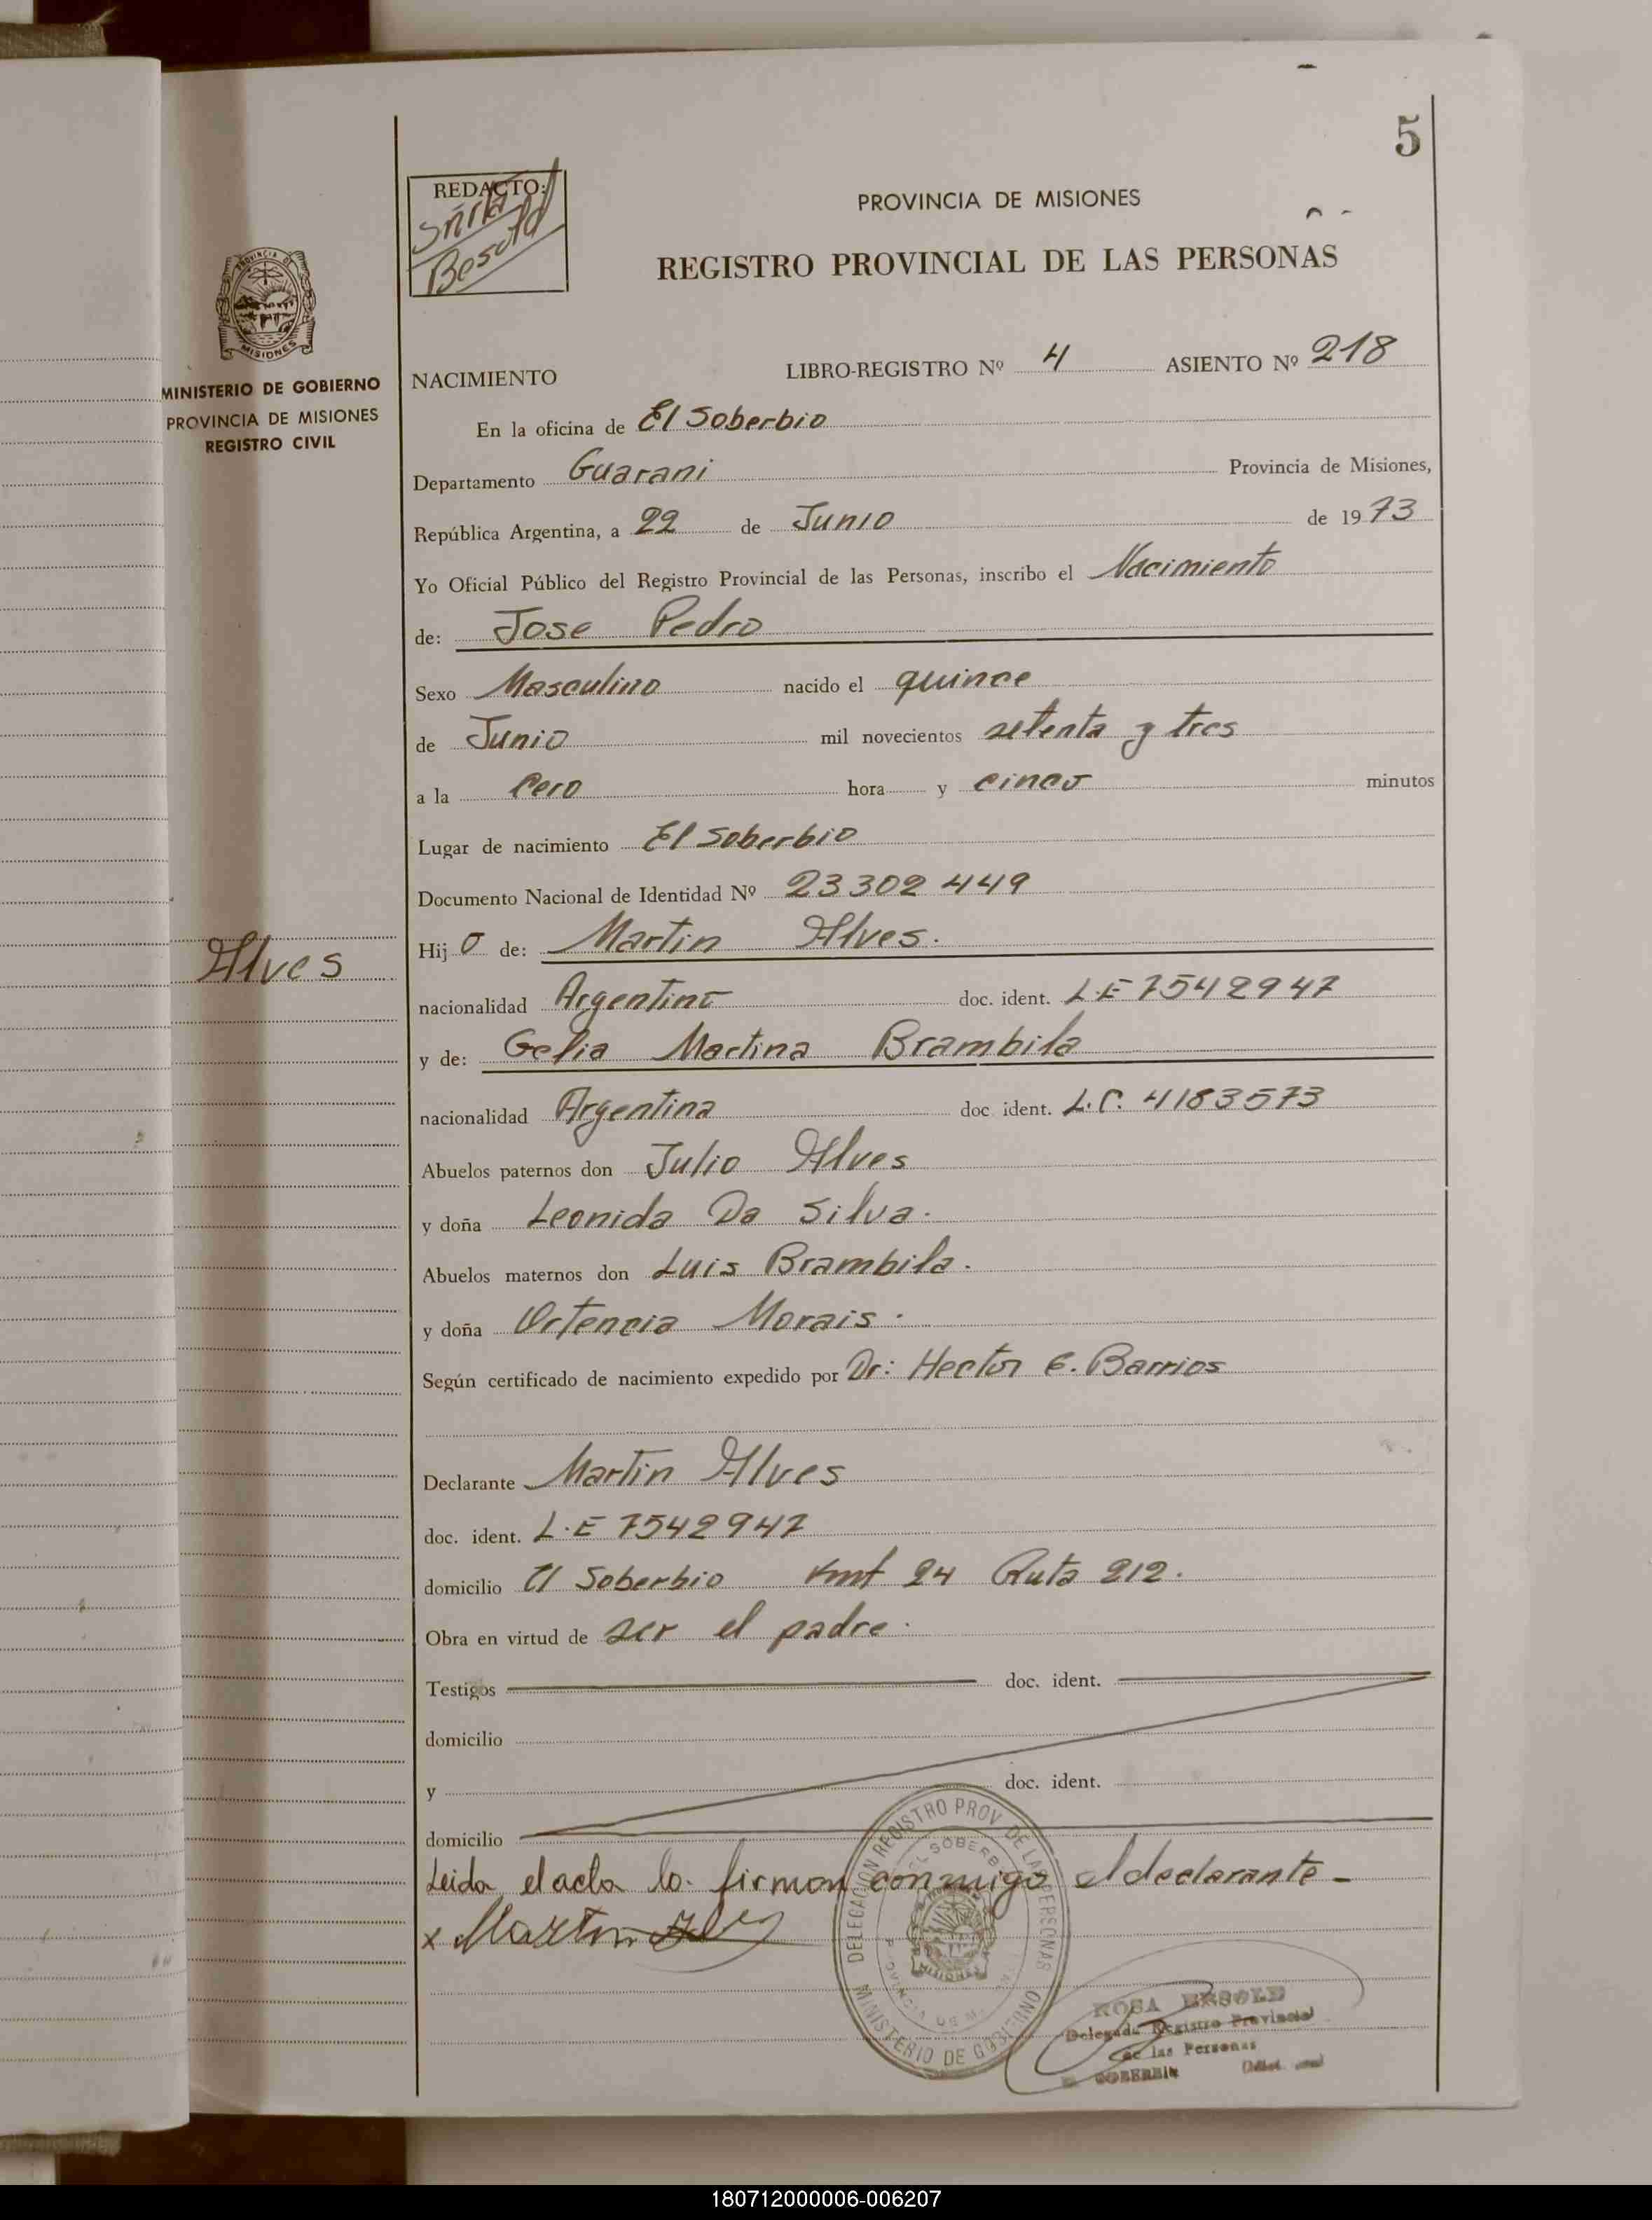 5
REDACTO:
Sñrta
Besold
PROVINCIA DE MISIONES
REGISTRO PROVINCIAL DE LAS PERSONAS
PROVINCIA DE
MISIONES
MINISTERIO DE GOBIERNO
PROVINCIA DE MISIONES
REGISTRO CIVIL
NACIMIENTO LIBRO-REGISTRO Nº 4 ASIENTO Nº 218
En la oficina de El Soberbio
Departamento Guarani Provincia de Misiones,
República Argentina, a 22 de Junio de 1973
Yo Oficial Público del Registro Provincial de las Personas, inscribo el Nacimiento
de: Jose Pedro
Sexo Masculino nacido el quince
de Junio mil novecientos setenta y tres
a la Cero hora y cinco minutos
Lugar de nacimiento El Soberbio
Documento Nacional de Identidad Nº 23 302 449
Hijo de: Martin Alves.
Alves
nacionalidad Argentino doc. ident. L.E 7542947
y de: Gelia Martina Brambila
nacionalidad Argentina doc. ident. L.C. 4183573
Abuelos paternos don Julio Alves
y doña Leonida Da Silva.
Abuelos maternos don Luis Brambila.
y doña Ortencia Morais.
Según certificado de nacimiento expedido por Dr: Hector E. Barrios
Declarante Martin Alves
doc. ident. L.E 7542947
domicilio El Soberbio Kmt 24 Ruta 212.
Obra en virtud de ser el padre.
Testigos doc. ident.
domicilio
y doc. ident.
domicilio
Leida el acta lo firman conmigo el declarante -
x Martin Alves
DELEGACION REGISTRO PROV. DE LAS PERSONAS
EL SOBERBIO
PROVINCIA DE M.
MISIONES
MINISTERIO DE GOBIERNO
ROSA BESOLD
Delegada Registro Provincial
de las Personas
EL SOBERBIO
180712000006-006207